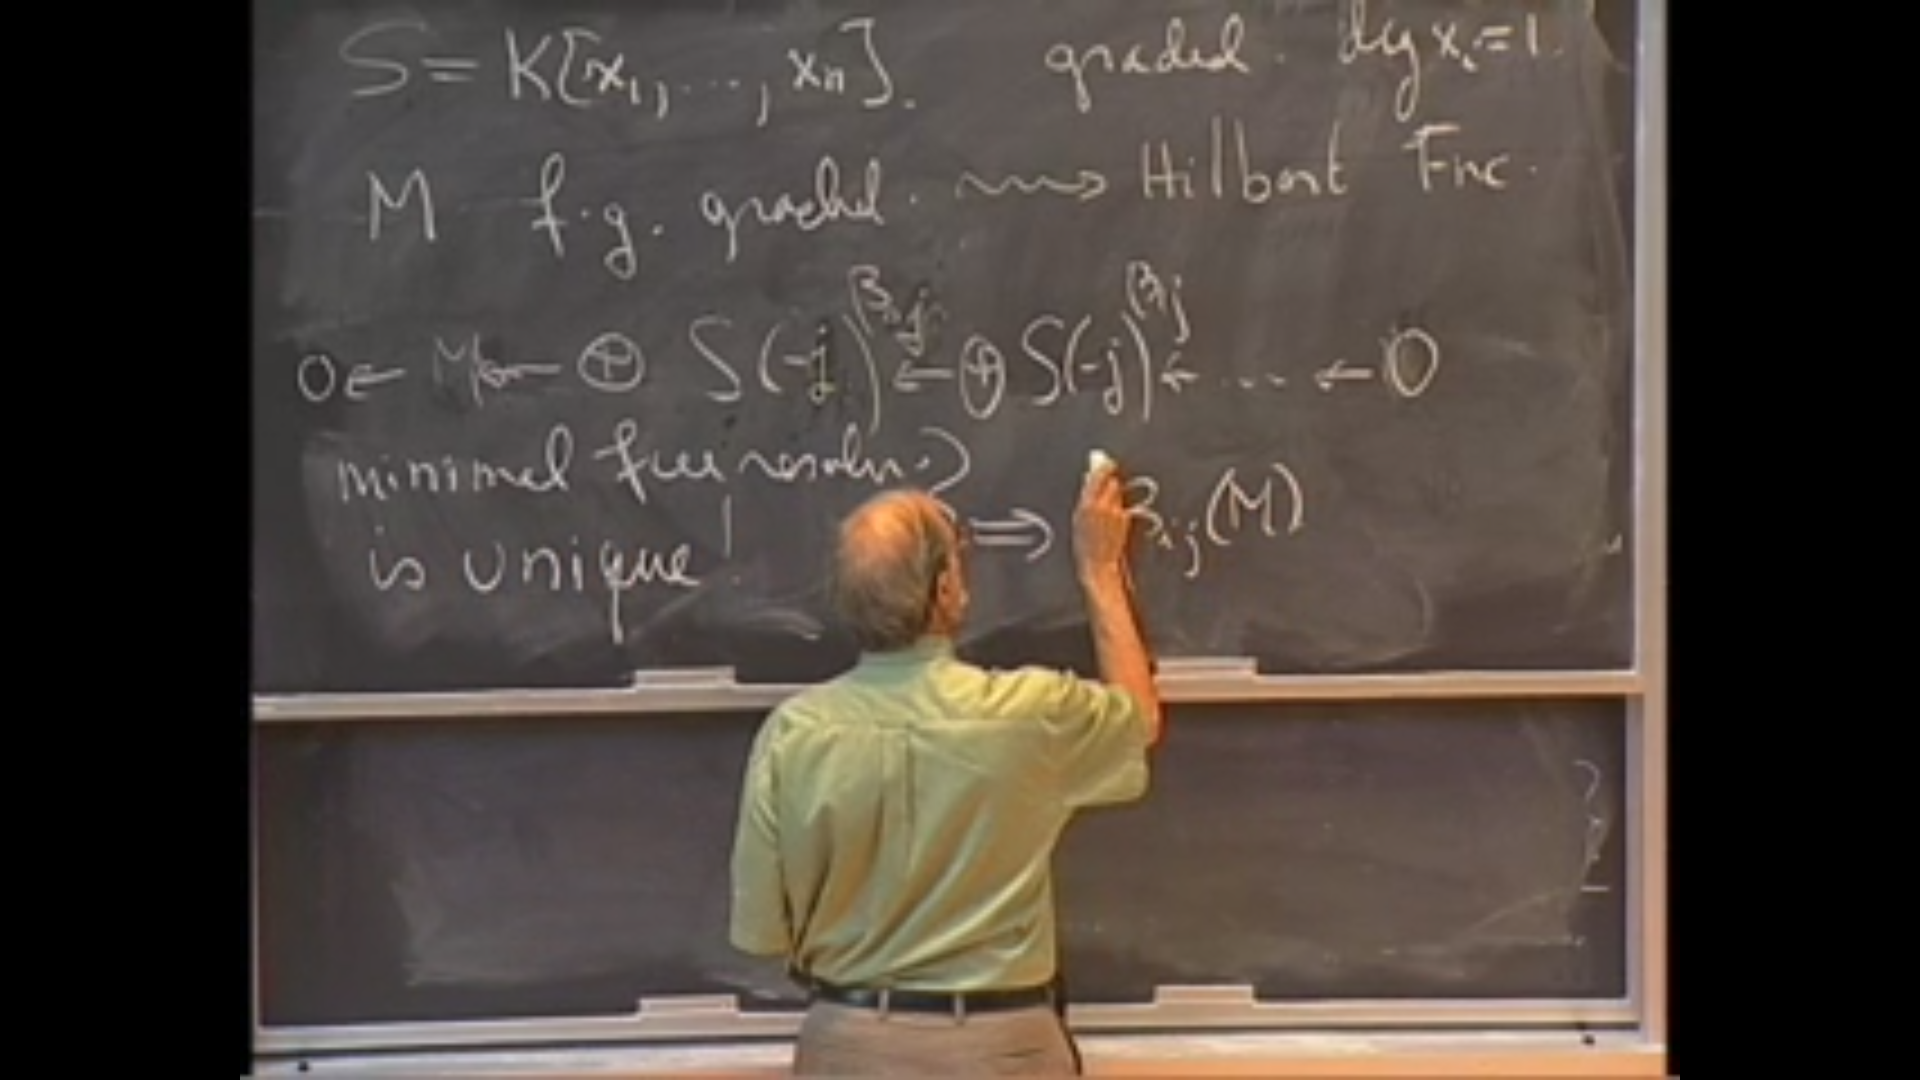 S = K[x₁, ..., xₙ]. graded. deg xᵢ = 1.
M f.g. graded. ⇝ Hilbert Fnc.
0 ← M ← ⊕ S(-j)^β₀ⱼ ← ⊕ S(-j)^β₁ⱼ ← ... ← 0
minimal free resoln.
is unique! ⇒ βᵢⱼ(M)